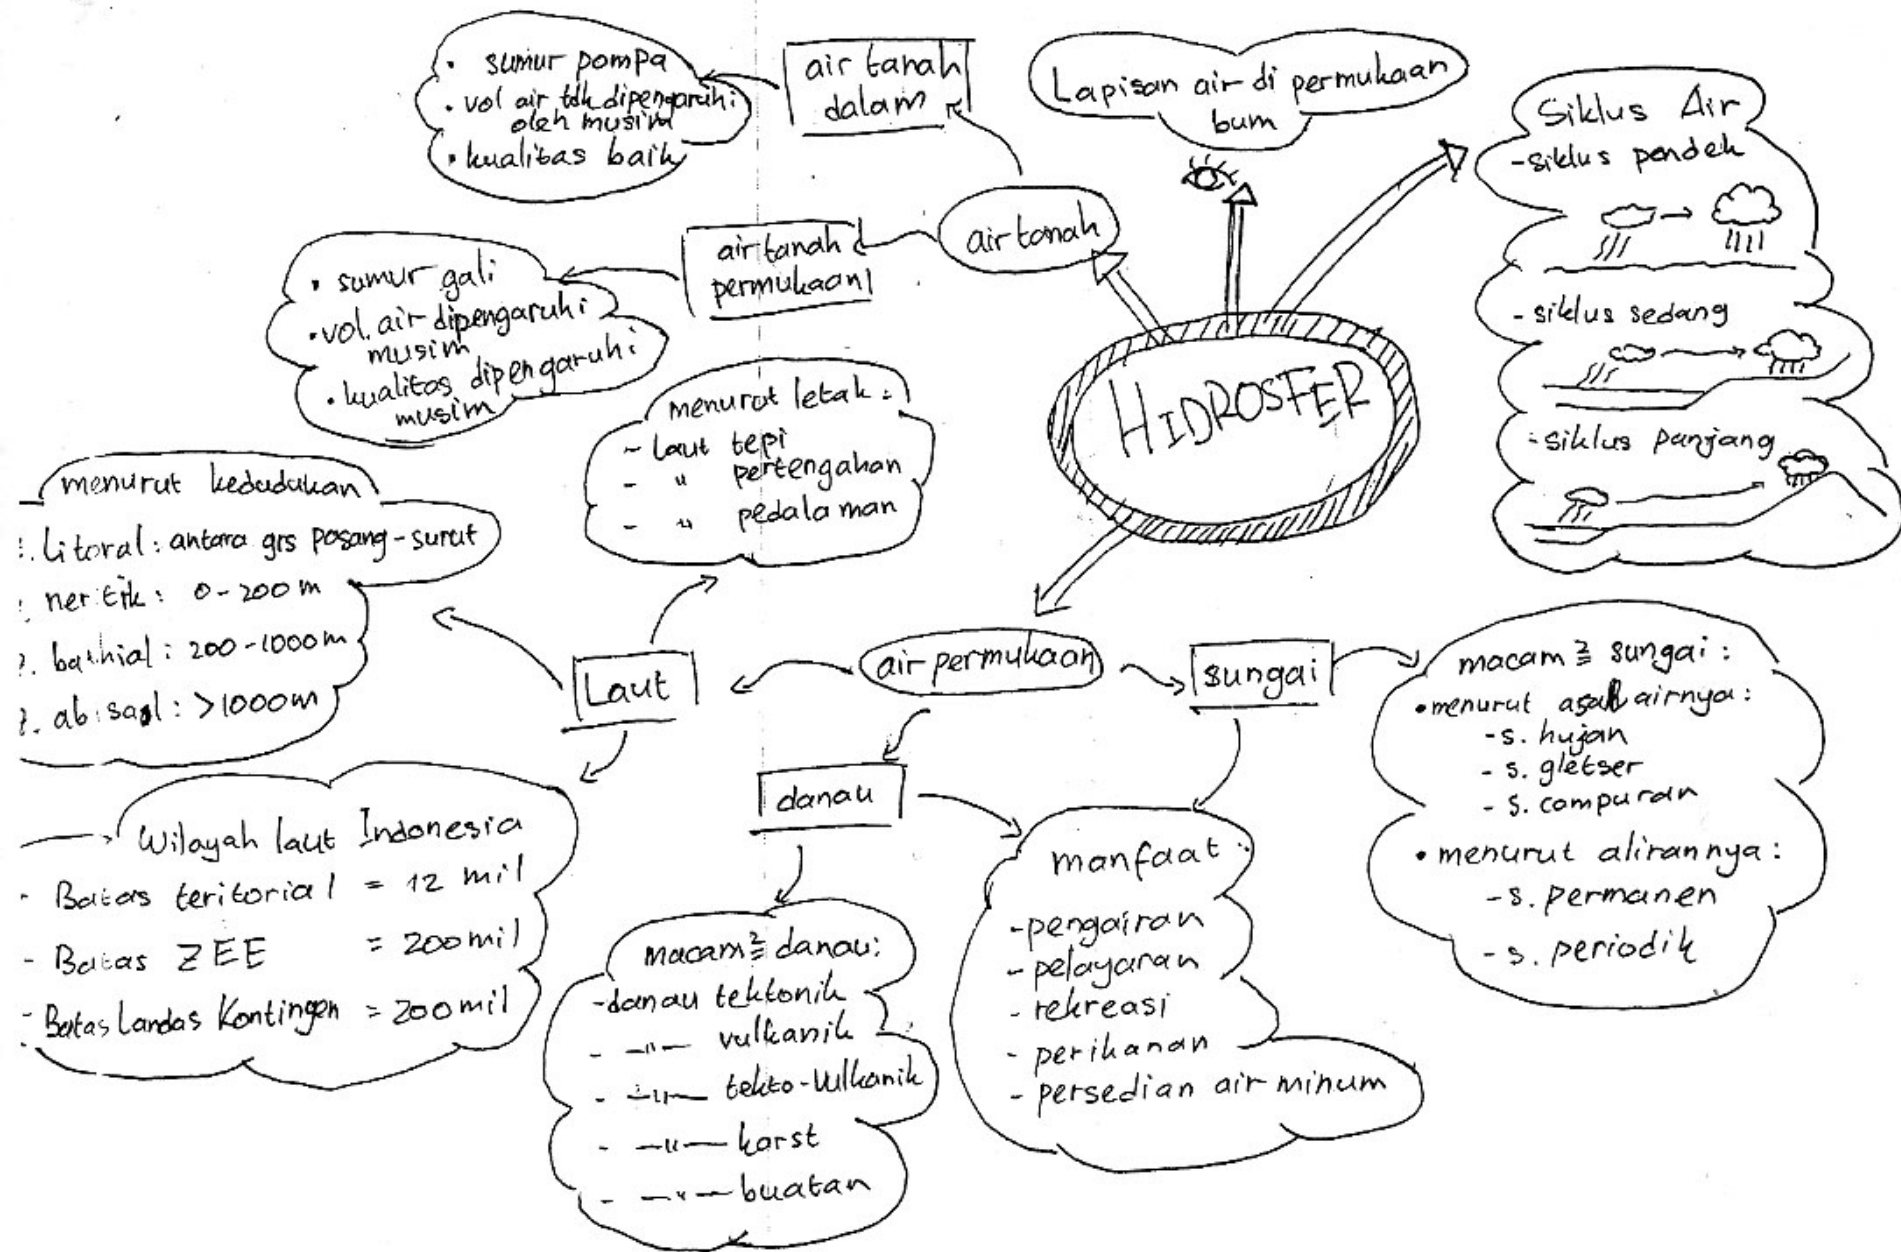 HIDROSFER
Lapisan air di permukaan
bum
Siklus Air
-siklus pendek
-siklus sedang
-siklus panjang
air tanah
air tanah
dalam
• sumur pompa
• vol air tdk dipengaruhi
oleh musim
• kualitas baik
air tanah
permukaan
• sumur gali
• vol. air dipengaruhi
musim
• kualitas dipengaruhi
musim
air permukaan
Laut
menurut letak:
- laut tepi
- " pertengahan
- " pedalaman
menurut kedudukan
litoral: antara grs pasang-surut
neritik: 0-200 m
bathial: 200-1000m
abisal: >1000m
Wilayah laut Indonesia
- Batas teritorial = 12 mil
- Batas ZEE = 200 mil
- Batas Landas Kontingen = 200 mil
danau
macam² danau:
- danau tektonik
- —"— vulkanik
- —"— tekto-vulkanik
- —"— karst
- —"— buatan
sungai
manfaat:
- pengairan
- pelayaran
- rekreasi
- perikanan
- persedian air minum
macam² sungai:
• menurut asal airnya:
- s. hujan
- s. gletser
- s. campuran
• menurut alirannya:
- s. permanen
- s. periodik